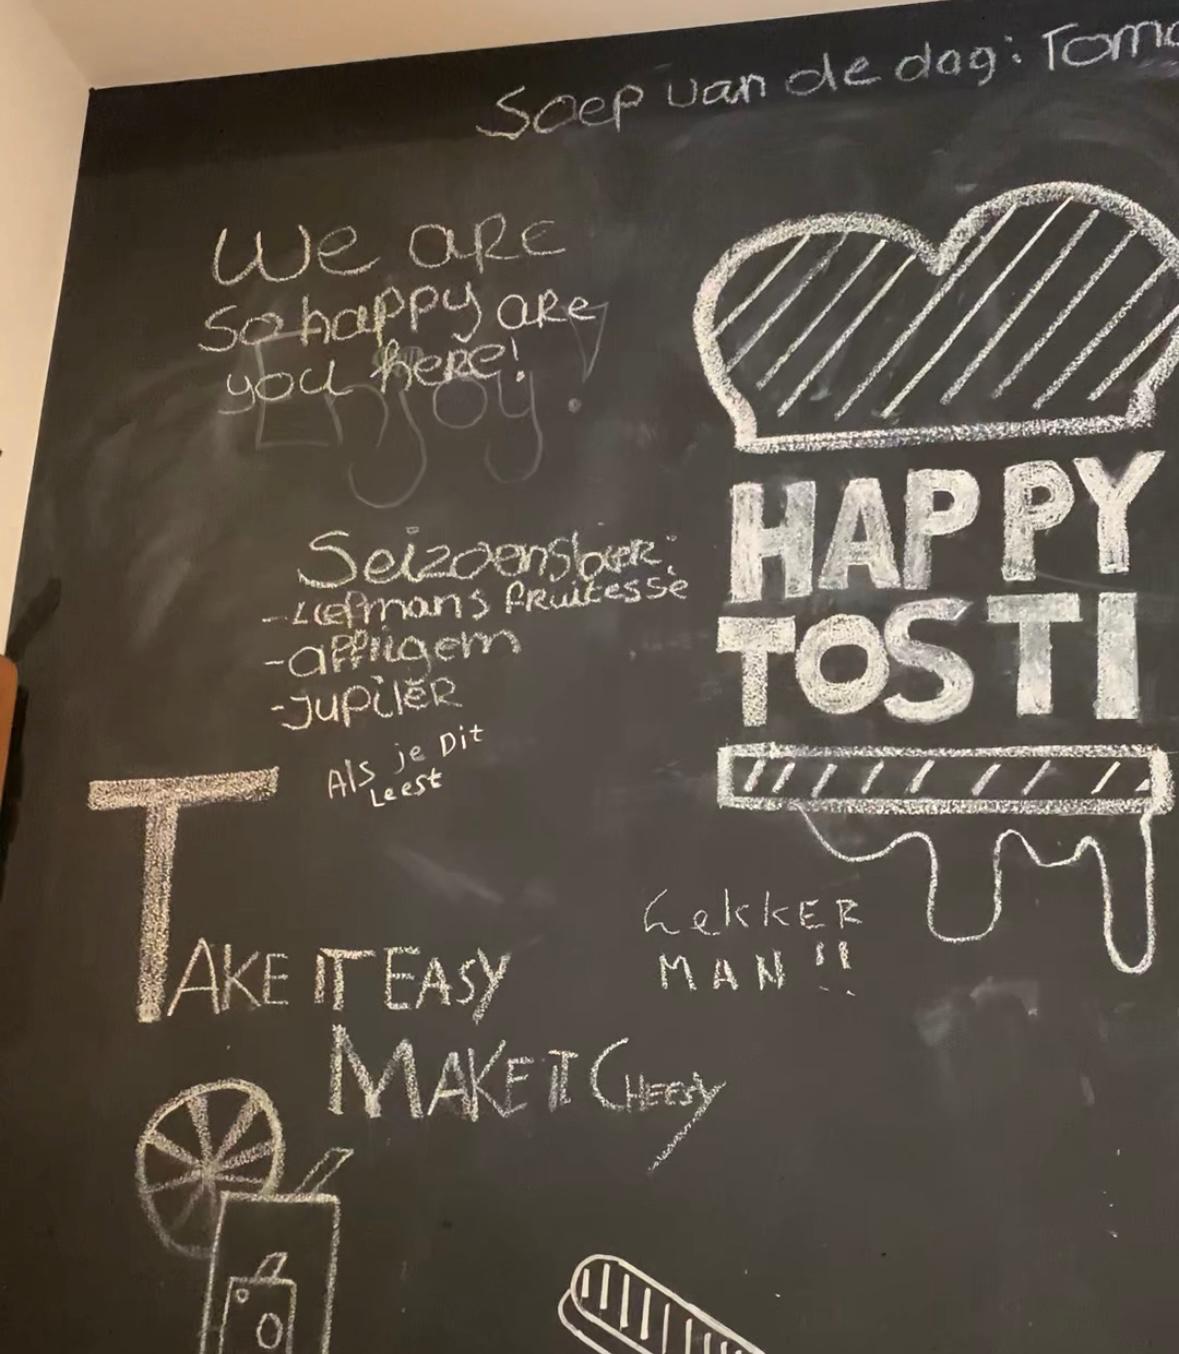 Soep van de dag: Tom
We are
so happy are
you here!
Enjoy!
Seizoensbier:
- Liefmans fruitesse
- affligem
- jupiler
Als je Dit
Leest
HAPPY
TOSTI
Lekker
MAN!!
TAKE IT EASY
MAKE IT CHEESY